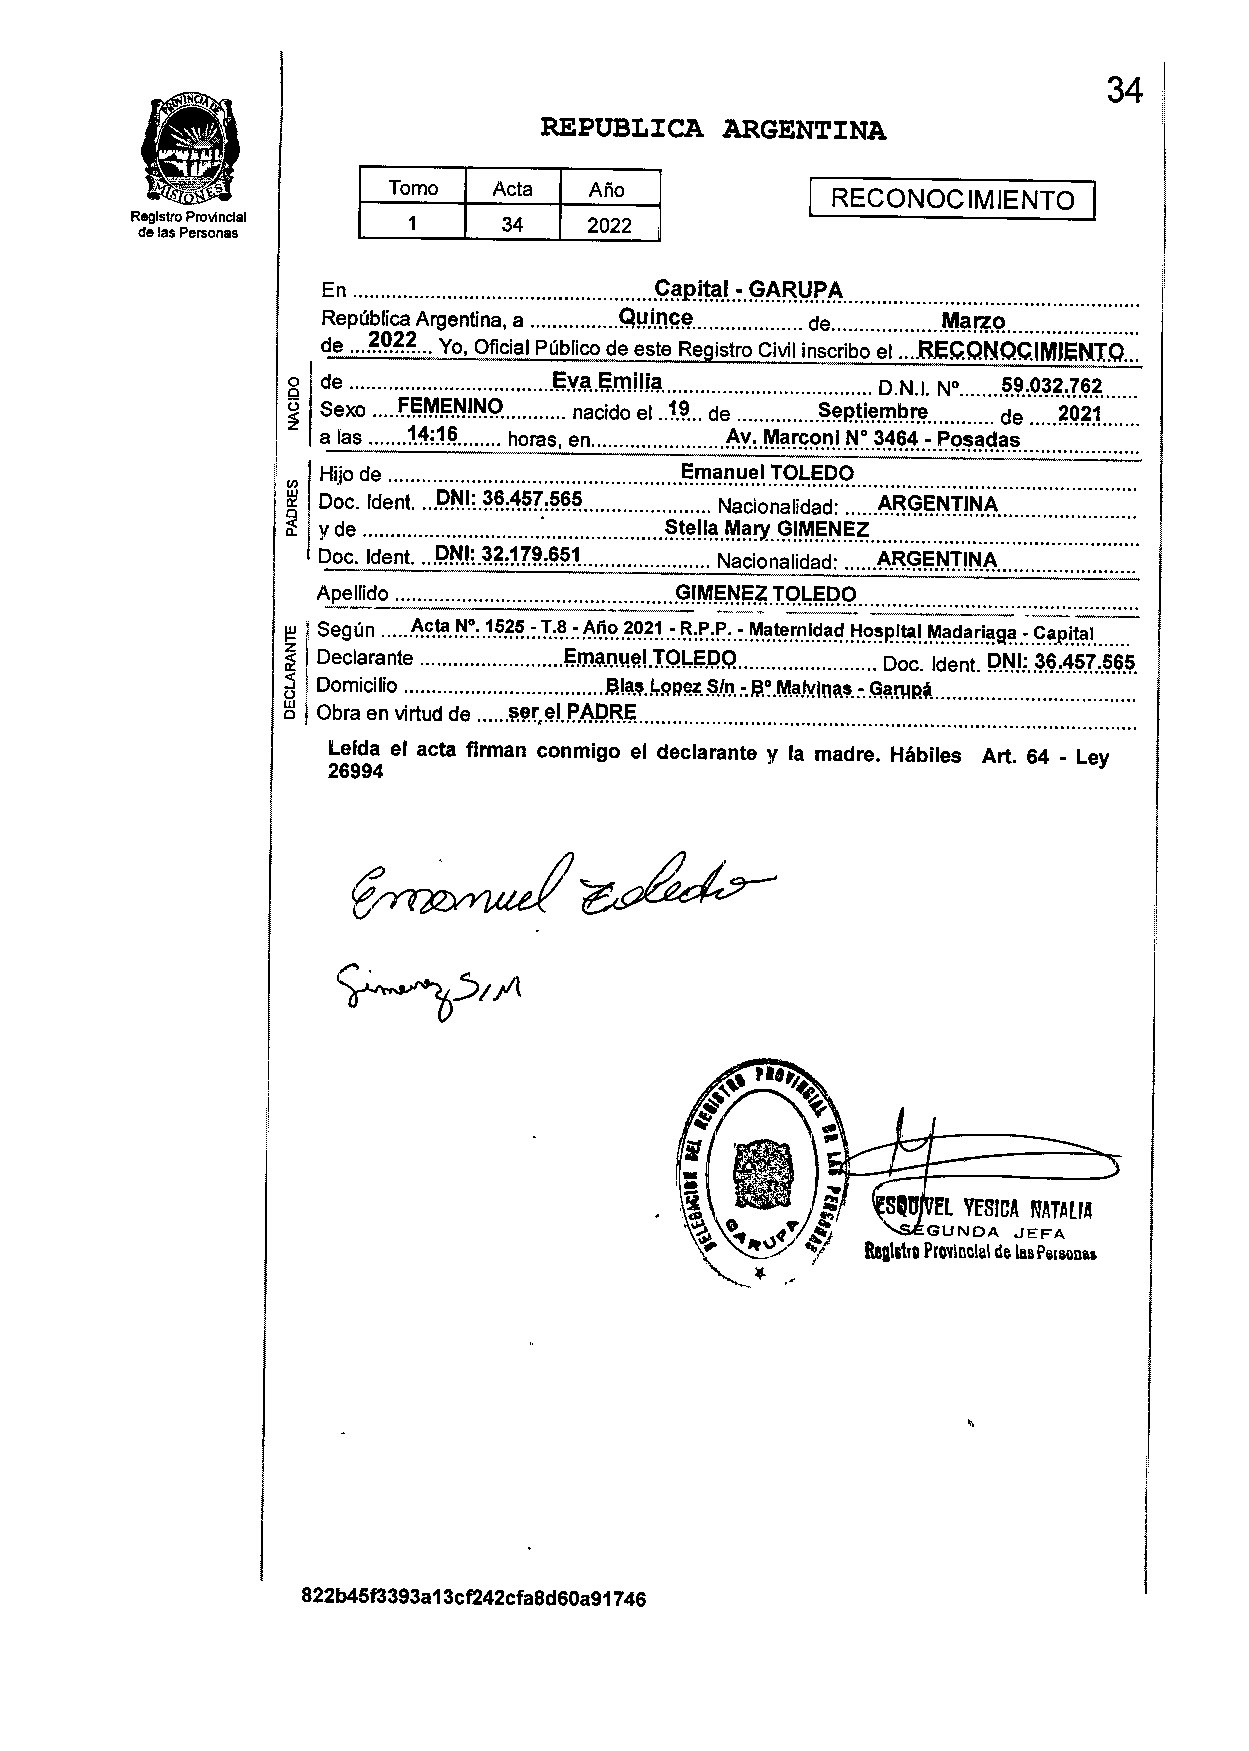 34
PROVINCIA DE
MISIONES
Registro Provincial
de las Personas
REPUBLICA ARGENTINA
Tomo Acta Año
1 34 2022
RECONOCIMIENTO
En ........ Capital - GARUPA ........
República Argentina, a ........ Quince ........ de ........ Marzo ........
de ... 2022 ... Yo, Oficial Público de este Registro Civil inscribo el ... RECONOCIMIENTO ...
NACIDO
de ........ Eva Emilia ........ D.N.I. Nº ....... 59.032.762 ......
Sexo .... FEMENINO ........ nacido el .. 19 .. de ........ Septiembre ........ de ..... 2021 ......
a las ....... 14:16 ....... horas, en ........ Av. Marconi N° 3464 - Posadas ........
PADRES
Hijo de ........ Emanuel TOLEDO ........
Doc. Ident. ... DNI: 36.457.565 ........ Nacionalidad: ..... ARGENTINA ........
y de ........ Stella Mary GIMENEZ ........
Doc. Ident. ... DNI: 32.179.651 ........ Nacionalidad: ..... ARGENTINA ........
Apellido ........ GIMENEZ TOLEDO ........
DECLARANTE
Según ..... Acta Nº. 1525 - T.8 - Año 2021 - R.P.P. - Maternidad Hospital Madariaga - Capital ......
Declarante ........ Emanuel TOLEDO ........ Doc. Ident. DNI: 36.457.565
Domicilio ........ Blas Lopez S/n - Bº Malvinas - Garupá ........
Obra en virtud de ..... ser el PADRE ........
Leída el acta firman conmigo el declarante y la madre. Hábiles Art. 64 - Ley
26994
Emanuel Toledo
Gimenez S/M
DELEGACION DEL REGISTRO PROVINCIAL DE LAS PERSONAS
GARUPA
ESQUIVEL YESICA NATALIA
SEGUNDA JEFA
Registro Provincial de las Personas
822b45f3393a13cf242cfa8d60a91746